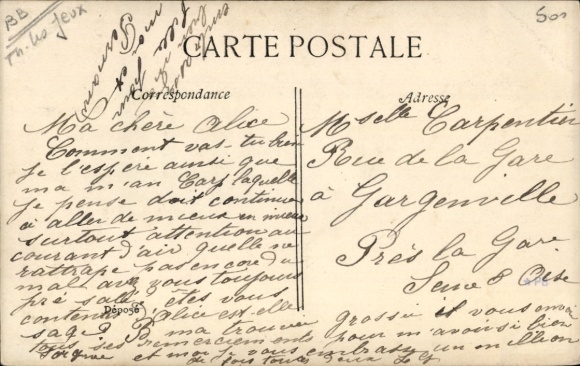 BB
Th. les Jeux
50
CARTE POSTALE
Correspondance
Adresse
Ma chère Alice
Comment vas-tu bien
je l'espère ainsi que
ma m'an Carp laquelle
je pense doit continuer
à aller de mieux en mieux
surtout attention au
courant d'air quelle ne
rattrape pas encore du
mal avez vous toujours
pré salé êtes vous
contents d'Alice est elle
sage P. ma trouvée grossie il vous envoie
tous ses remerciements pour m'avoir si bien
soignée et moi je vous embrasse un million
de fois toutes deux
Déposé
Mselle Carpentier
Rue de la Gare
à Gargenville
Près la Gare
Seine & Oise